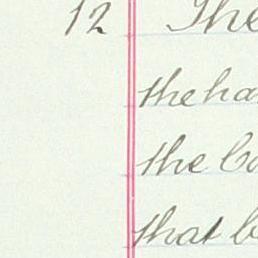 12 The
the ha
the
that